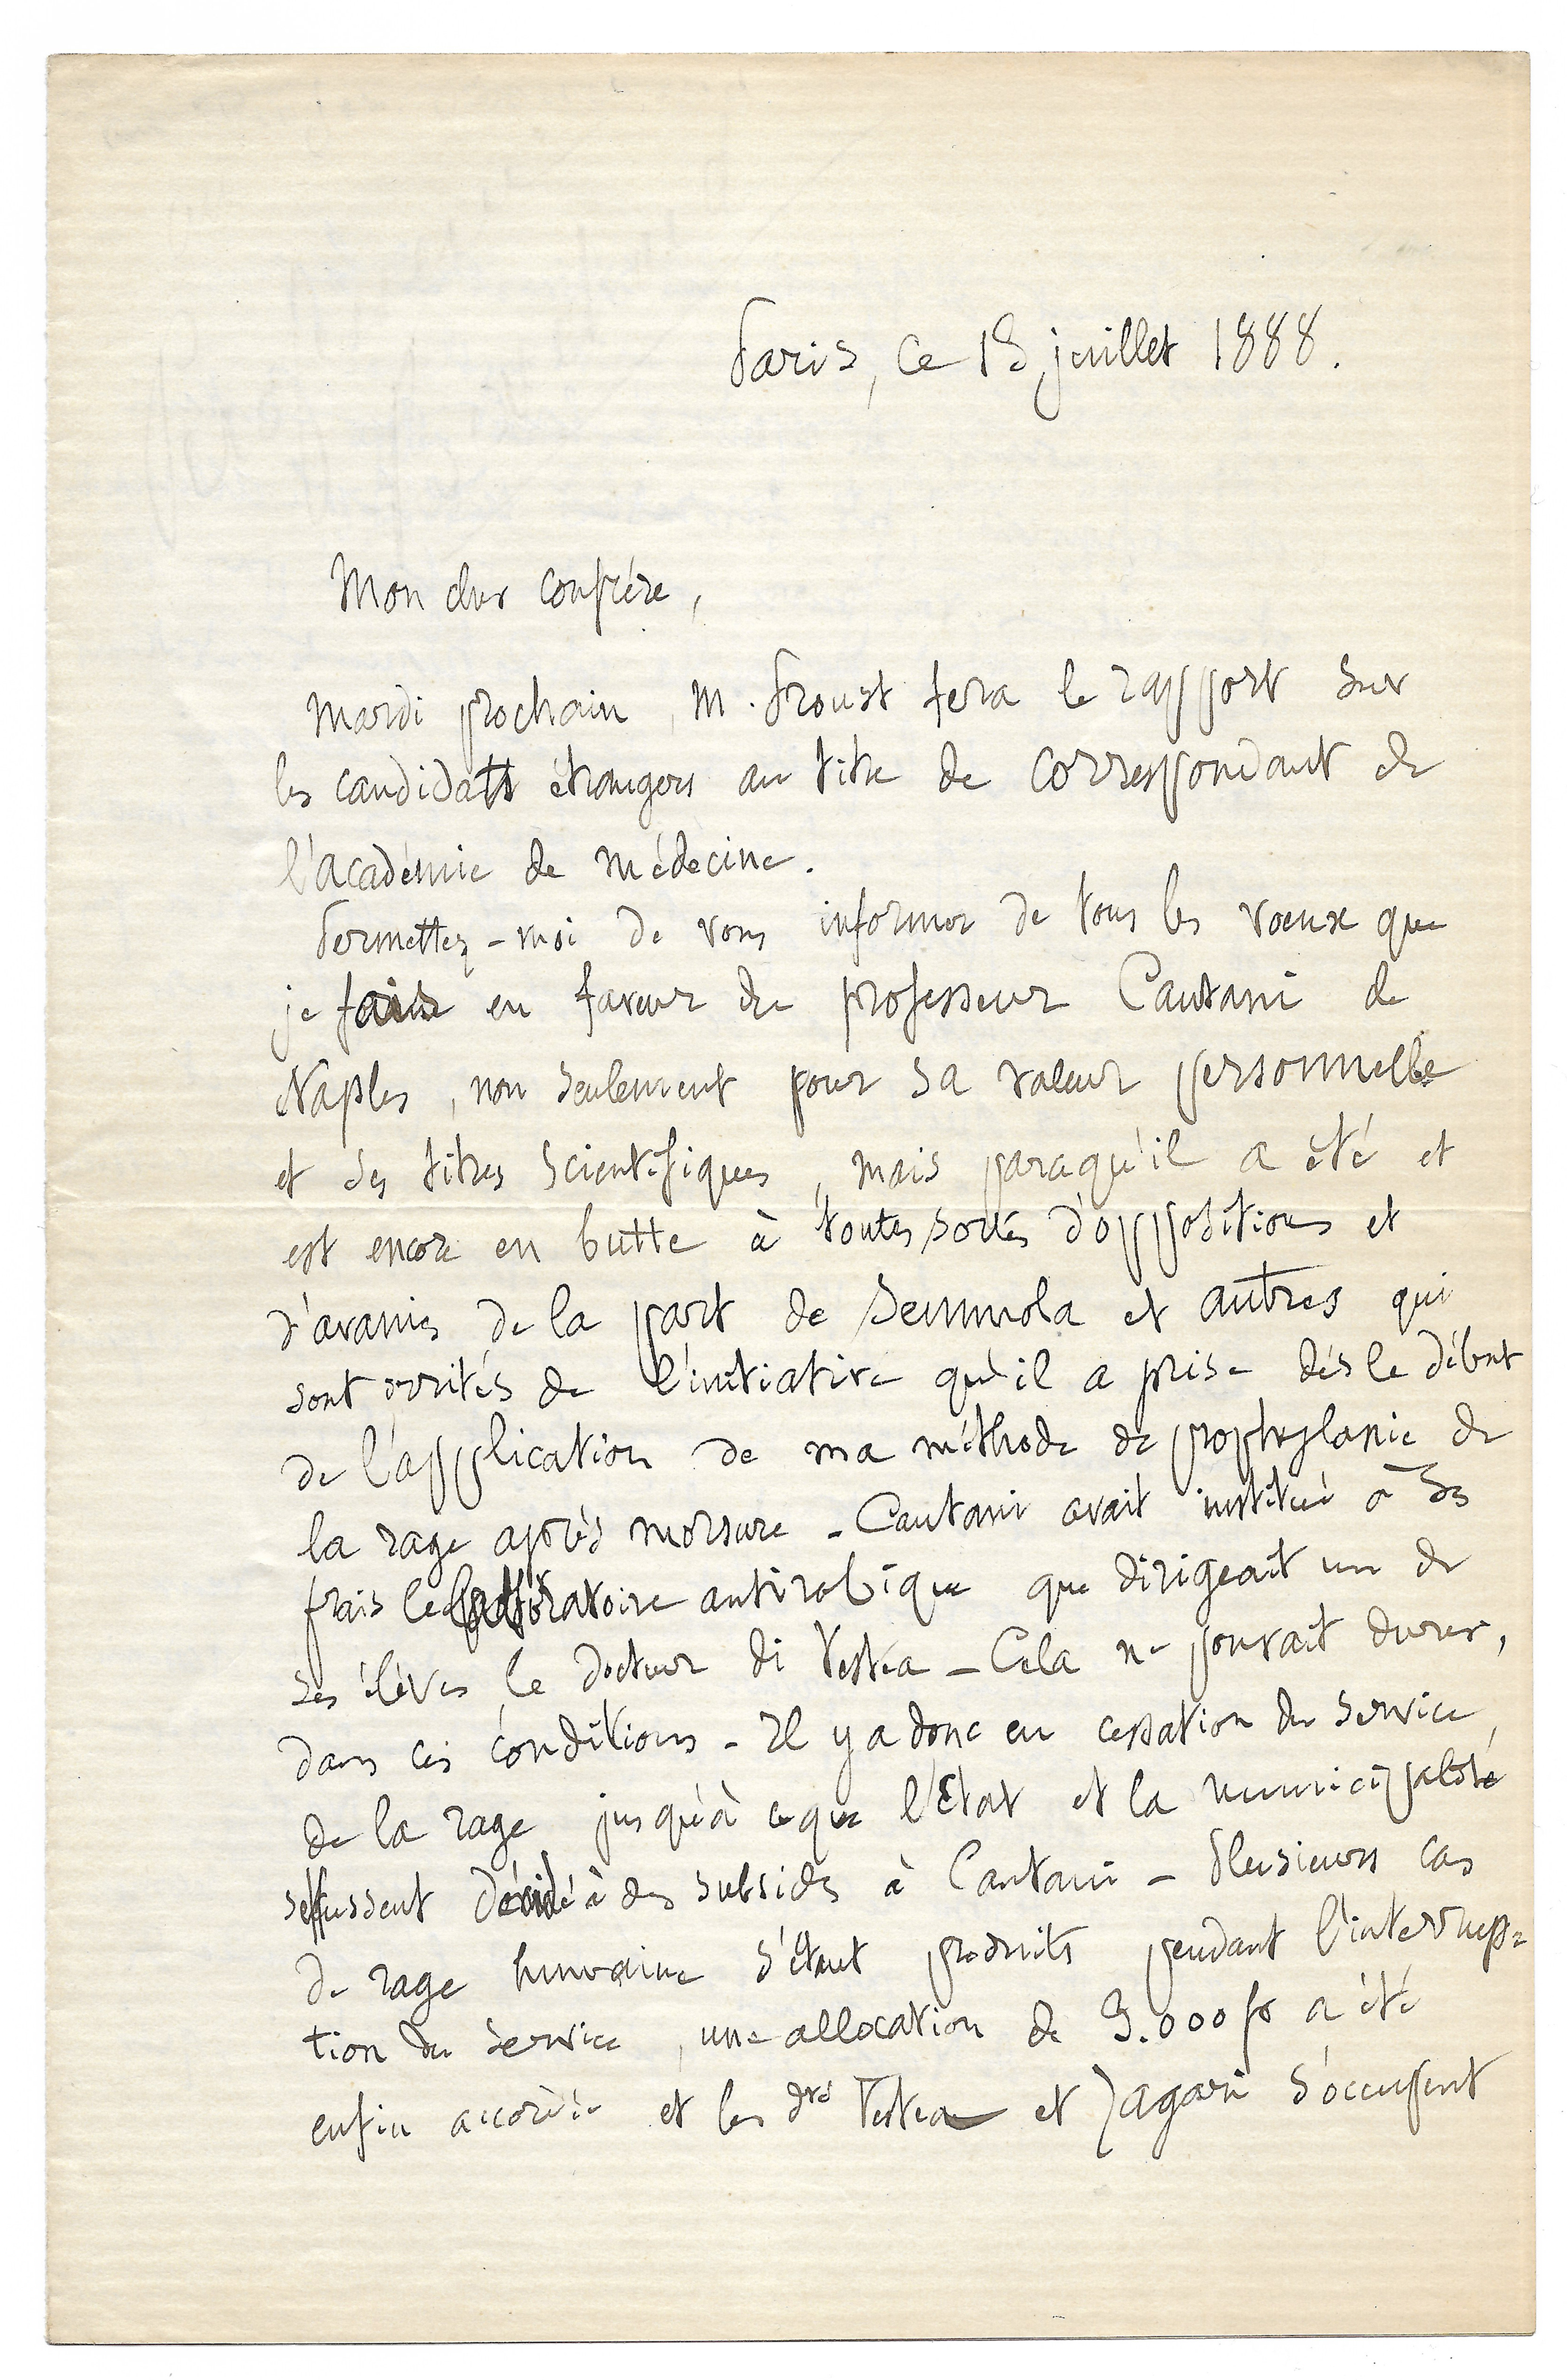 Paris, ce 18 juillet 1888.
Mon cher confrère,
Mardi prochain, M. Proust fera le rapport sur
les candidats étrangers au titre de correspondant de
l'académie de médecine.
Permettez-moi de vous informer de tous les voeux que
je fais en faveur du professeur Cantani de
Naples, non seulement pour sa valeur personnelle
et ses titres scientifiques, mais parcequ'il a été et
est encore en butte à toutes sortes d'oppositions et
d'avanies de la part de Semmola et autres qui
sont irrités de l'initiative qu'il a prise dès le début
de l'application de ma méthode de prophylaxie de
la rage après morsure - Cantani avait institué à ses
frais le laboratoire antirabique que dirigeait un de
ses élèves le docteur di Vestea - Cela ne pouvait durer,
dans ces conditions - Il y a donc eu cessation du service,
de la rage jusqu'à ce que l'Etat et la municipalité
se fussent décidé à des subsides à Cantani - Plusieurs cas
de rage humaine s'étant produits pendant l'interrup=
tion du service, une allocation de 9.000 fr a été
enfin accordée et les drs Vestea et Zagari s'occupent